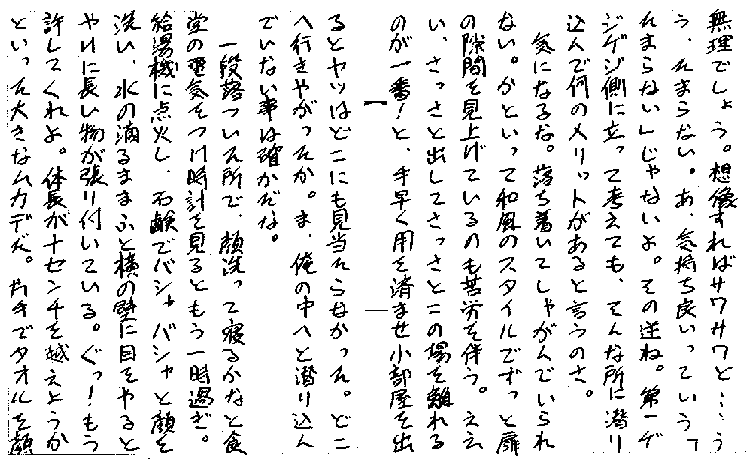 無理でしょう。想像すればサワサワと……う
う、たまらない。あ、気持ち良いっていう「
たまらない」じゃないよ。その逆ね。第一ゲ
ジゲジ側に立って考えても、そんな所に潜り
込んで何のメリットがあると言うのさ。
気になるな。落ち着いてしゃがんでいられ
ない。かといって和風のスタイルでずっと扉
の隙間を見上げているのも苦労を伴う。ええ
い、さっさと出してさっさとこの場を離れる
のが一番！と、手早く用を済ませ小部屋を出
るとヤツはどこにも見当たらなかった。どこ
へ行きやがったか。ま、俺の中へと潜り込ん
でいない事は確かだな。
一段落ついた所で、顔洗って寝るかなと食
堂の電気をつけ時計を見るともう一時過ぎ。
給湯機に点火し、石鹸でバシャバシャと顔を
洗い、水の滴るままふと横の壁に目をやると
やけに長い物が張り付いている。ぐっ！もう
許してくれよ。体長が十センチを越えようか
といった大きなムカデだ。片手でタオルを顔